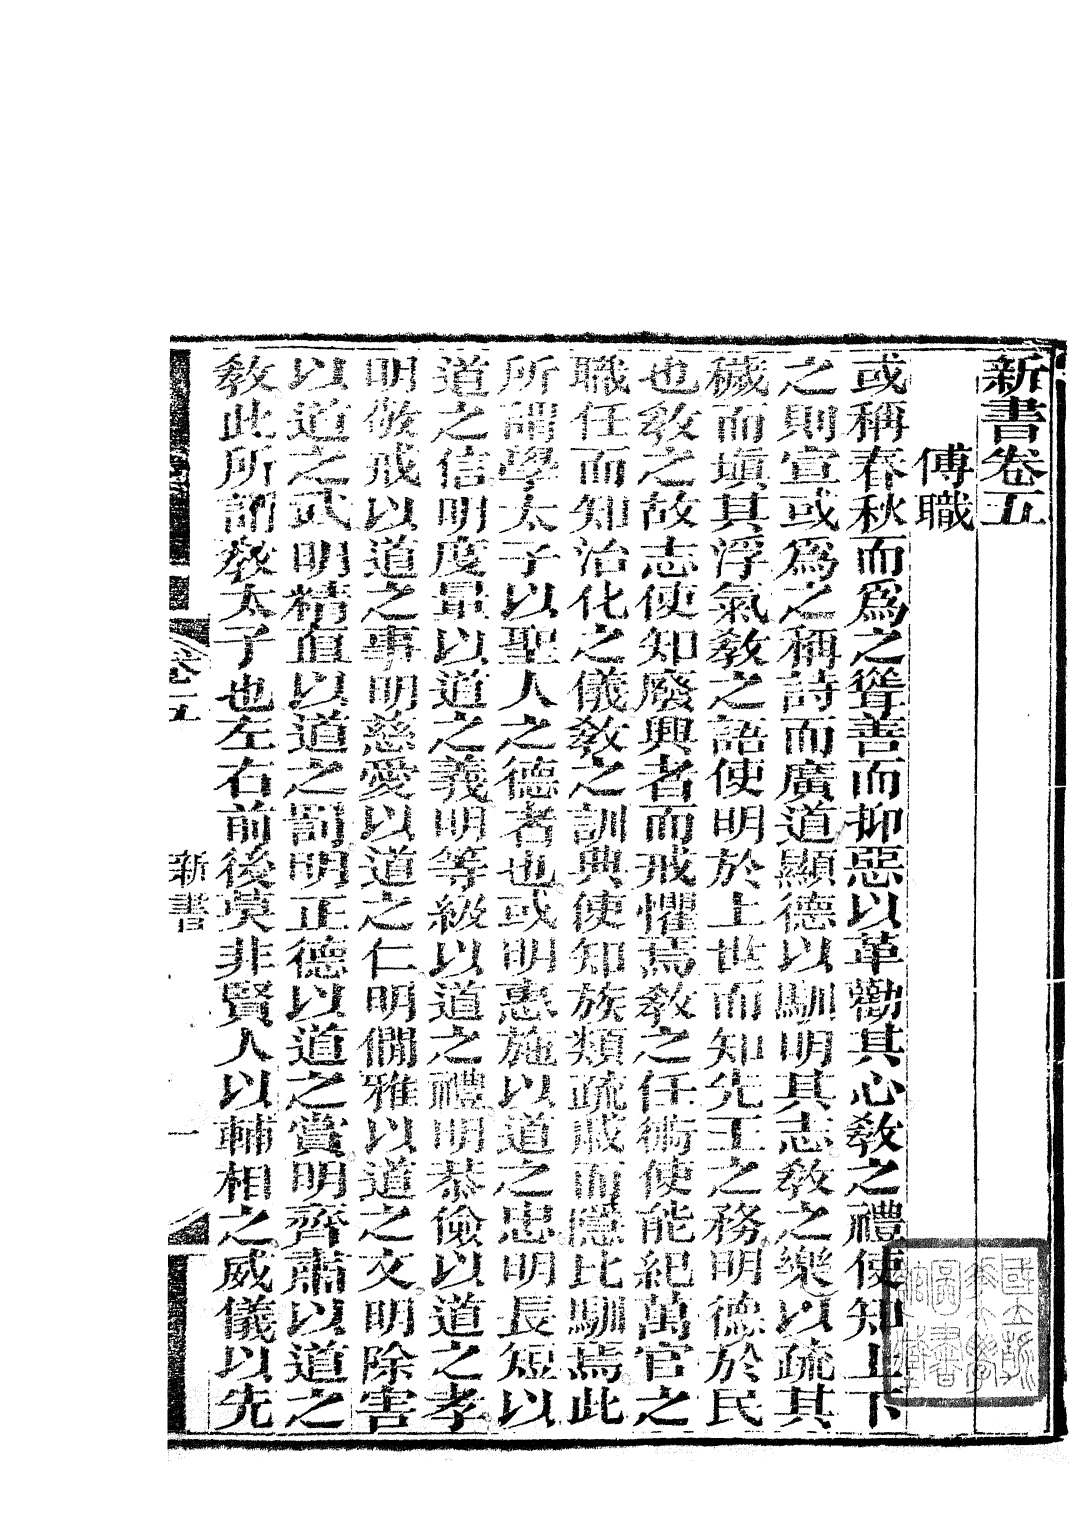 新書卷五
傅職
或稱春秋而爲之聳善而抑惡以革勸其心敎之禮使知上下
之則宣或爲之稱詩而廣道顯德以馴明其志敎之樂以疏其
穢而塡其浮氣敎之語使明於上世而知先王之務明德於民
也敎之故志使知廢興者而戒懼焉敎之任術使能紀萬官之
職任而知治化之儀敎之訓典使知族類疏戚而隱比馴焉此
所謂學太子以聖人之德者也或明惠施以道之忠明長短以
道之信明度量以道之義明等級以道之禮明恭儉以道之孝
明敬戒以道之事明慈愛以道之仁明僩雅以道之文明除害
以道之武明精直以道之罰明正德以道之賞明齊肅以道之
敎此所謂敎太子也左右前後莫非賢人以輔相之威儀以先
卷五
新書
一